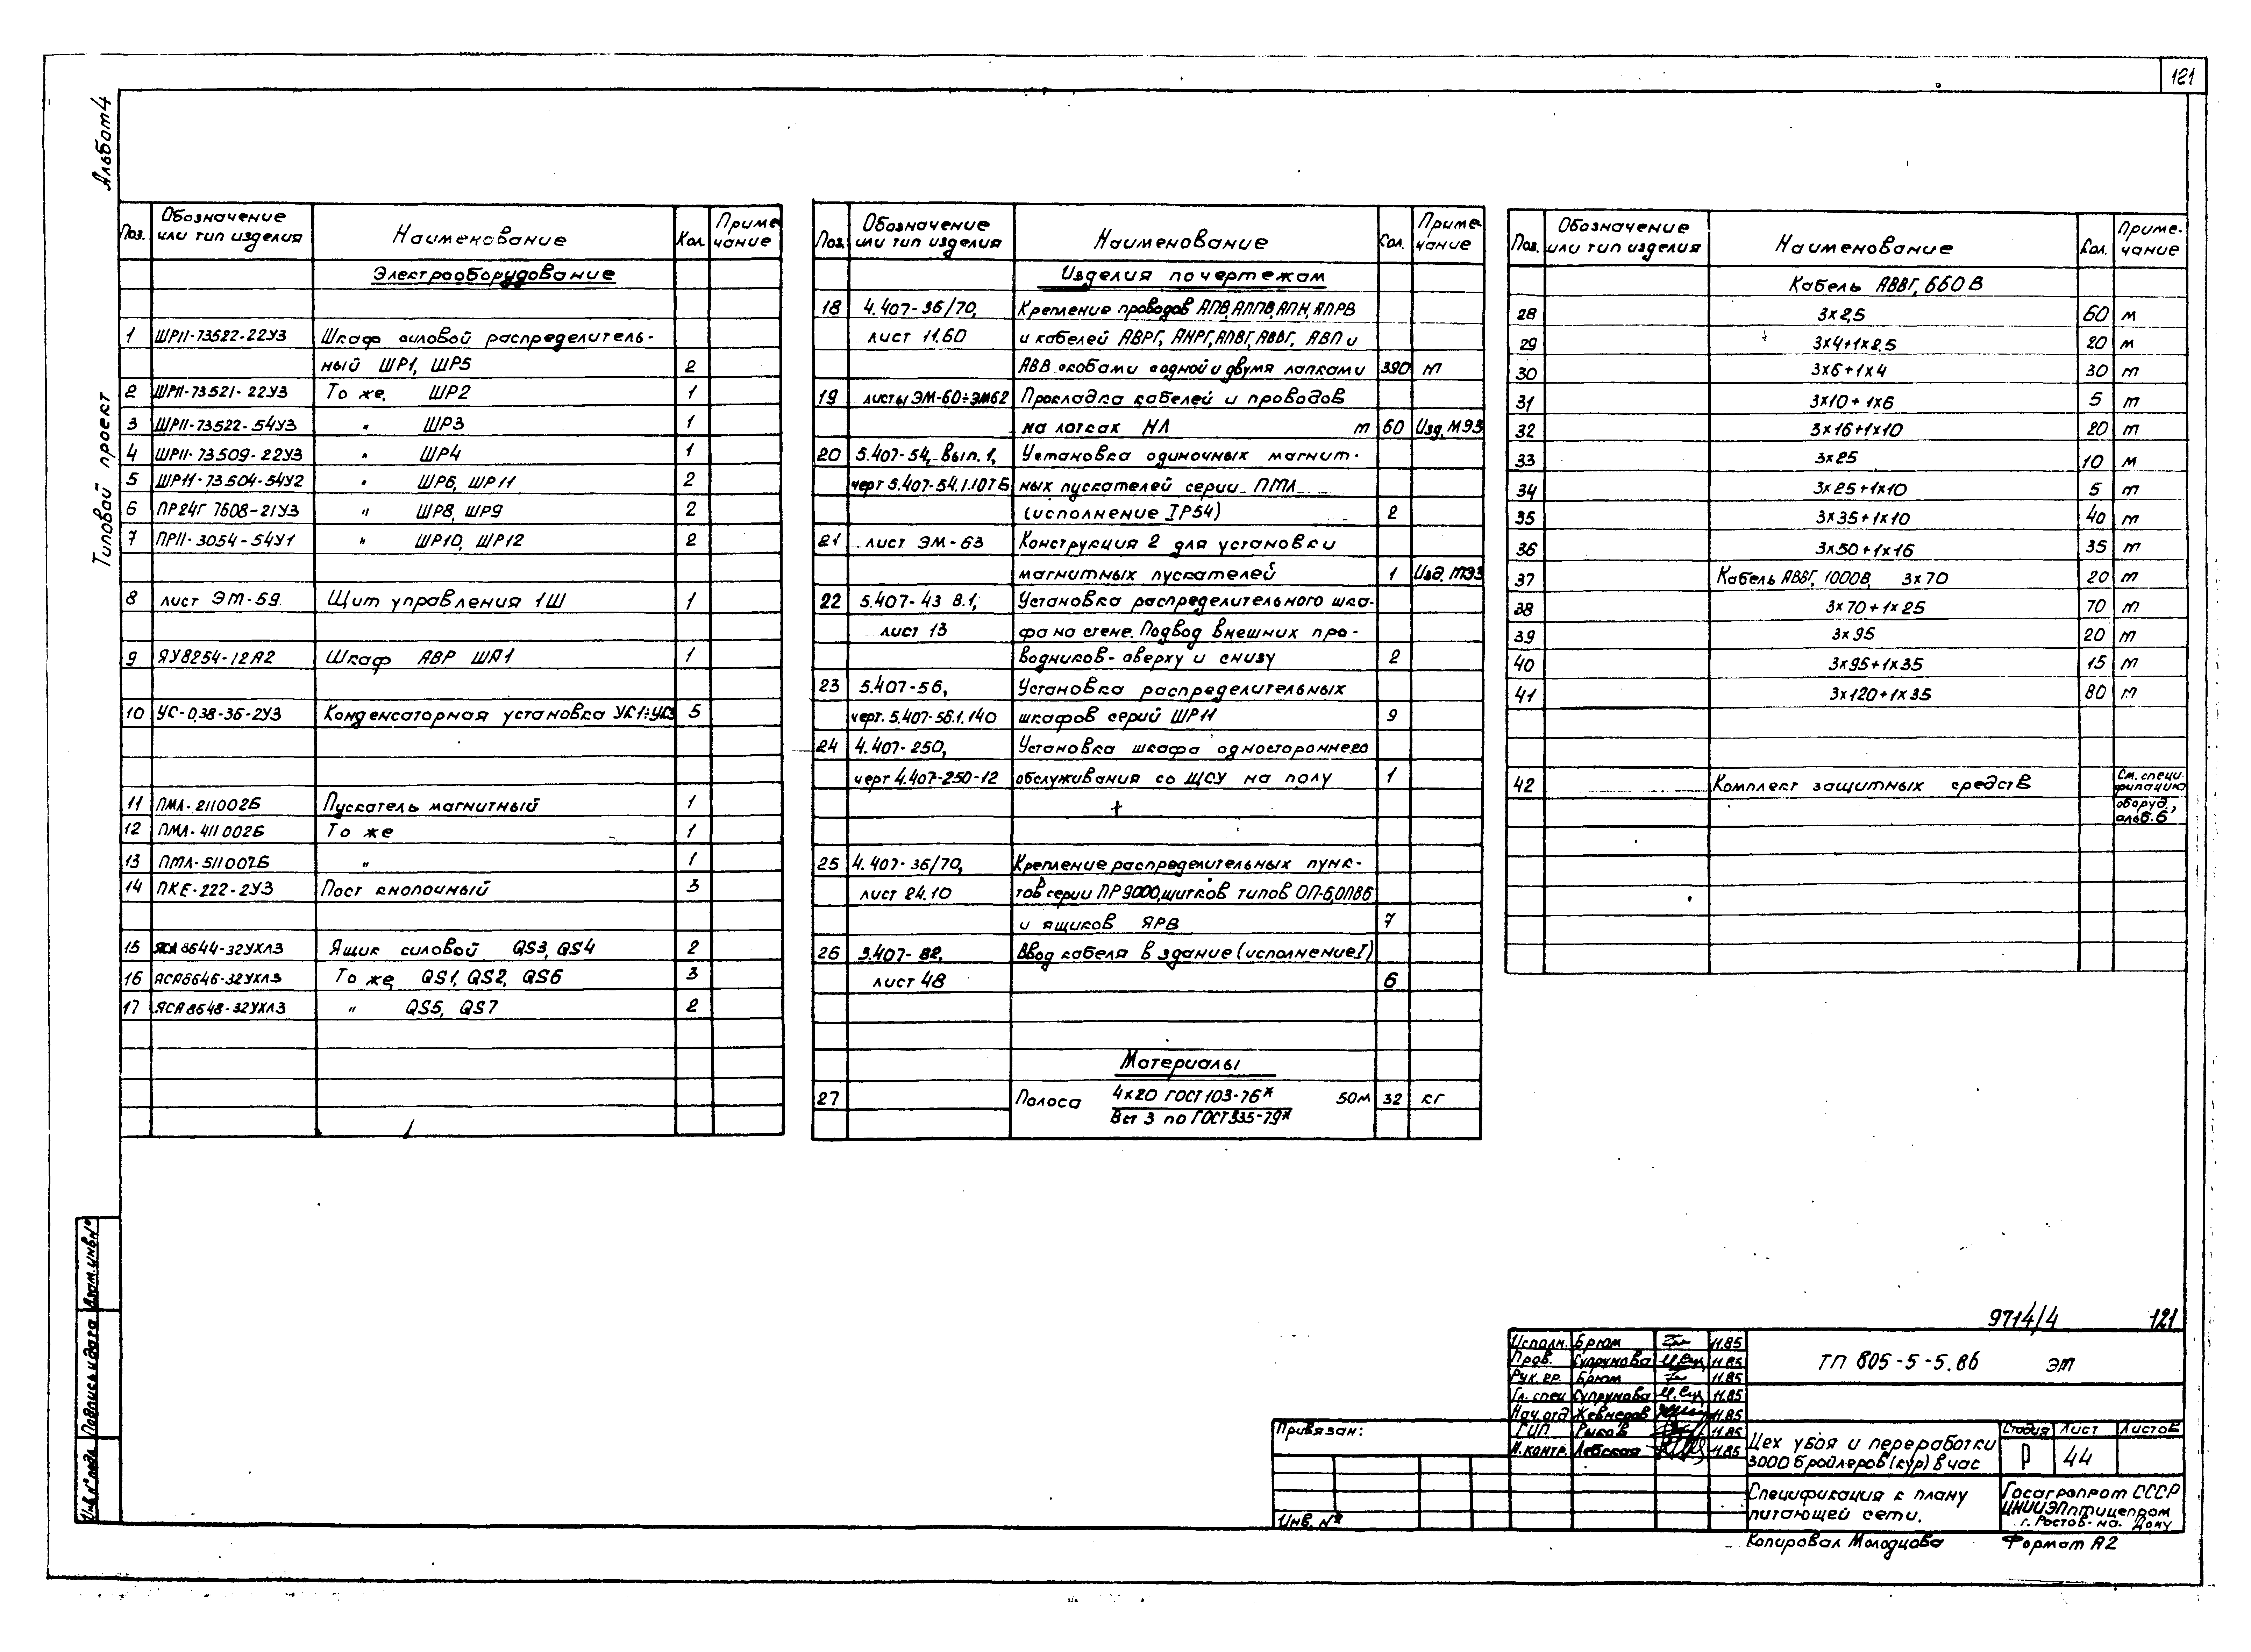 121
Альбом 4
Типовой проект
Поз. Обозначение или тип изделия Наименование Кол. Примечание
Электрооборудование
1 ШР11-73522-22У3 Шкаф силовой распределитель-
ный ШР1, ШР5 2
2 ШР11-73521-22У3 То же, ШР2 1
3 ШР11-73522-54У3 " ШР3 1
4 ШР11-73509-22У3 " ШР4 1
5 ШР11-73504-54У2 " ШР6, ШР11 2
6 ПР24Г 7608-21У3 " ШР8, ШР9 2
7 ПР11-3054-54У1 " ШР10, ШР12 2
8 лист ЭМ-59 Щит управления 1Щ 1
9 ЯУ8254-12А2 Шкаф АВР ША1 1
10 УС-0,38-36-2У3 Конденсаторная установка 5
11 ПМЛ-211002Б Пускатель магнитный 1
12 ПМЛ-411002Б То же 1
13 ПМЛ-511002Б " 1
14 ПКЕ-222-2У3 Пост кнопочный 3
15 ЯСА8644-32УХЛ3 Ящик силовой QS3, QS4 2
16 ЯСА8646-32УХЛ3 То же QS1, QS2, QS6 3
17 ЯСА8648-32УХЛ3 " QS5, QS7 2
Поз. Обозначение или тип изделия Наименование Кол. Приме-чание
Изделия по чертежам
18 4.407-36/70, Крепление проводов АПВ, АППВ, АПН, АПРВ
лист 11.60 и кабелей АВРГ, АНРГ, АПВГ, АВВГ, АВП и
АВВ скобами с одной и двумя лапками 390 м
19 листы ЭМ-60÷ЭМ62 Прокладка кабелей и проводов
на лотках НЛ м 60 Изд. МЭЗ
20 5.407-54, вып.1, Установка одиночных магнит-
черт 5.407-54.1.10ТБ ных пускателей серии ПМЛ
(исполнение IP54) 2
21 лист ЭМ-63 Конструкция 2 для установки
магнитных пускателей 1 Изд. МЭЗ
22 5.407-43 в.1, Установка распределительного шка-
лист 13 фа на стене. Подвод внешних про-
водников- сверху и снизу 2
23 5.407-56, Установка распределительных
черт. 5.407-56.1.140 шкафов серий ШР11 9
24 4.407-250, Установка шкафа одностороннего
черт 4.407-250-12 обслуживания со ЩСУ на полу 1
25 4.407-36/70, Крепление распределительных пунк-
лист 24.10 тов серии ПР9000, щитков типов
и ящиков ЯРВ 7
26 3.407-82, Ввод кабеля в здание (исполнение I)
лист 48 6
Материалы
27 Полоса 4х20 ГОСТ 103-76* 50м 32 кг
Вст 3 по ГОСТ 535-79*
Поз. Обозначение или тип изделия Наименование Кол. Приме-чание
Кабель АВВГ, 660 В
28 3х2,5 60 м
29 3х4+1х2,5 20 м
30 3х6+1х4 30 м
31 3х10+1х6 5 м
32 3х16+1х10 20 м
33 3х25 10 м
34 3х25+1х10 5 м
35 3х35+1х10 40 м
36 3х50+1х16 35 м
37 Кабель АВВГ, 1000В, 3х70 20 м
38 3х70+1х25 70 м
39 3х95 20 м
40 3х95+1х35 15 м
41 3х120+1х35 80 м
42 Комплект защитных средств См. специ-
фикацию
оборуд.,
альб. 6
Инв.№подл. Подпись и дата Взам.инв№
9714/4 121
Исполн. Брюм 11.85
Пров. Супрунова 11.85
Рук. гр. Брюм 11.85
Гл. спец Супрунова 11.85
Нач. отд Жевнеров 11.85
ГИП Рыков 11.85
Н. контр. 11.85
ТП 805-5-5.86 ЭМ
Привязан:
Инв. №
Цех убоя и переработки
3000 бройлеров (кур) в час
Стадия Лист Листов
Р 44
Спецификация к плану
питающей сети.
Госагропром СССР
ЦНИИЭПптицепром
г. Ростов-на-Дону
Копировал Молодцова Формат А2